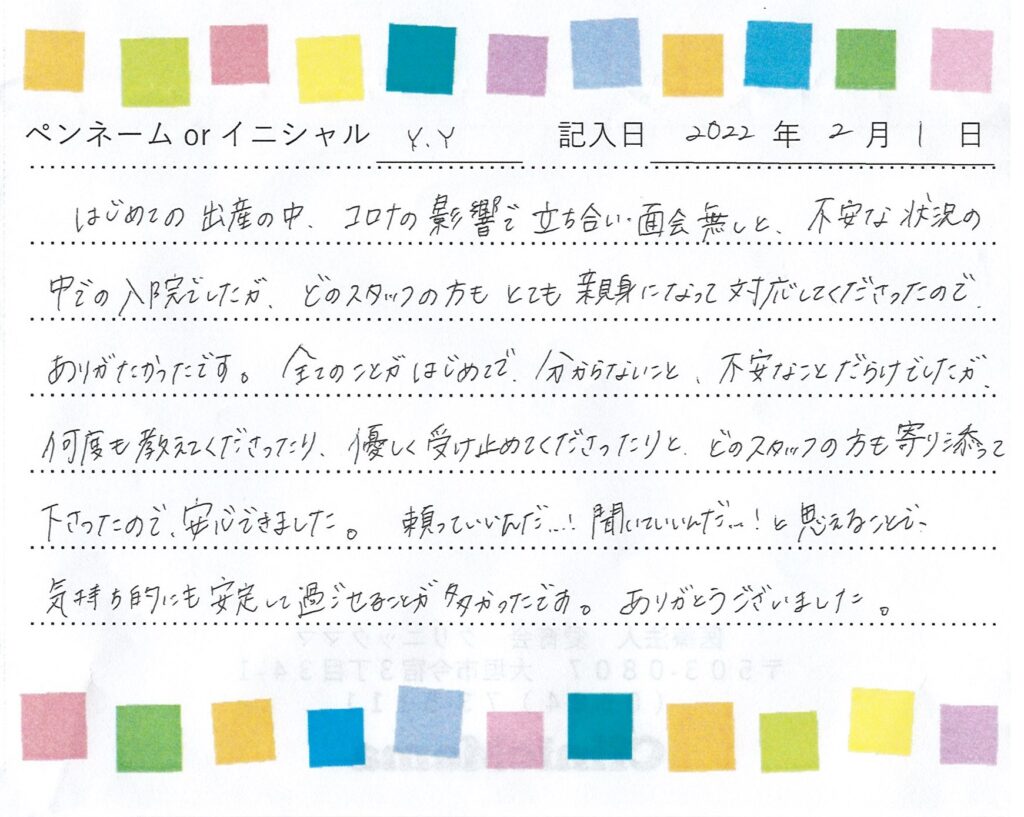 ペンネーム or イニシャル Y.Y 記入日 2022 年 2 月 1 日
はじめての出産の中、コロナの影響で立ち合い・面会無しと、不安な状況の
中での入院でしたが、どのスタッフの方もとても親身になって対応してくださったので、
ありがたかったです。全てのことがはじめてで、分からないこと、不安なことだらけでしたが、
何度も教えてくださったり、優しく受け止めてくださったりと、どのスタッフの方も寄り添って
下さったので、安心できました。頼っていいんだ…!聞いていいんだ…!と思えることで、
気持ち的にも安定して過ごせることが多かったです。ありがとうございました。
医療法人 愛育会 クリニックママ
〒503-0807 大垣市今宿3丁目34-1